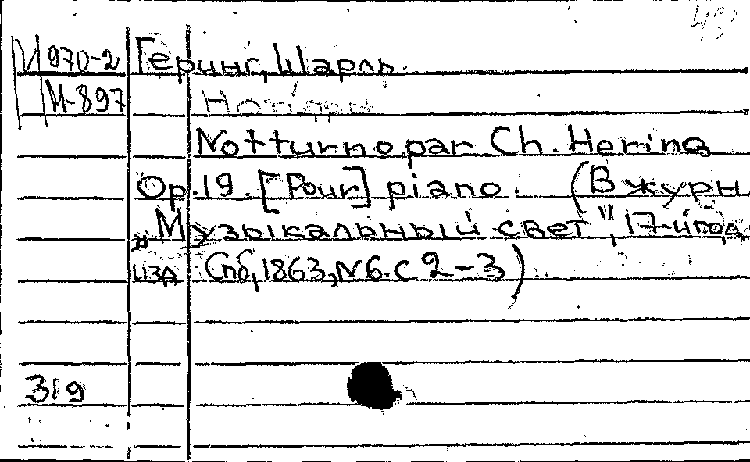 43
М970-2 Геринг, Шарль.
М-897
Notturno par Ch. Hering
Op. 19. [Pour] piano. (В журн
„Музыкальный свет", 17-й год
изд Спб, 1863, N6. с 2-3)
319